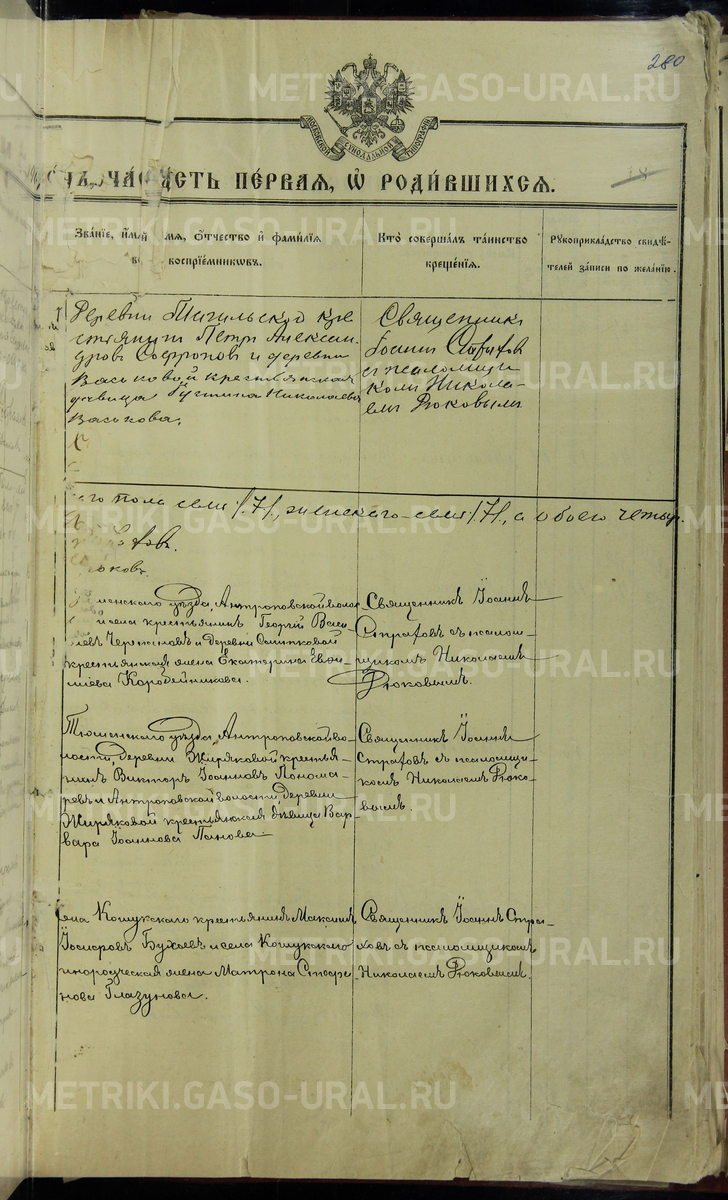 280
МОСКОВСКОЙ СѴНОДАЛЬНОЙ ТИПОГРАФІИ
ЧА́СТЬ ПЕ́РВАЯ, Ѡ҆ РОДИ́ВШИХСЯ.
18
Зва́нїе, и҆́мя, ѻ҆́тчество и҆ фами́лїѧ
воспрїе́мникѡвъ.
Кто̀ соверша́лъ та́инство
креще́нїѧ.
Рꙋкоприкла́дство свидѣ́-
телей за́писи по жела́нїю.
Деревни Тагильской кре
стьянин Петръ Алексан
дровъ Софроновъ и деревни
Васьковой крестьянская
девица Николаева
Васькова.
Священникъ
Іоаннъ Стратов
с псаломщи
комъ Никола-
емъ Рюковымъ
пола семь /7/, женскаго семь /7/, а обоего четыр.
менскаго уѣзда, Антроповской воло
села крестьянинъ Георгій Васи
и деревни
крестьянская жена Екатерина
Коробейникова.
Священникъ Іоаннъ
Стратовъ съ псалом-
щикомъ Николаемъ
Рюковымъ.
Тюменскаго уѣзда, Антроповской во-
лости, деревни Жиряковой крестья-
нинъ Викторъ Іоанновъ Понома-
ревъ и Антроповской волости, деревни
Жиряковой крестьянская дѣвица Вар-
вара Іоаннова Панова.
Священникъ Іоаннъ
Стратовъ съ псаломщи-
комъ Николаемъ Рюко-
вымъ.
села Кошукскаго крестьянинъ Максимъ
Бухаевъ и села Кошукскаго
инородческая жена Матрона
Глазунова.
Священникъ Іоаннъ Стра-
товъ съ псаломщикомъ
Николаемъ Рюковымъ.
METRIKI.GASO-URAL.RU